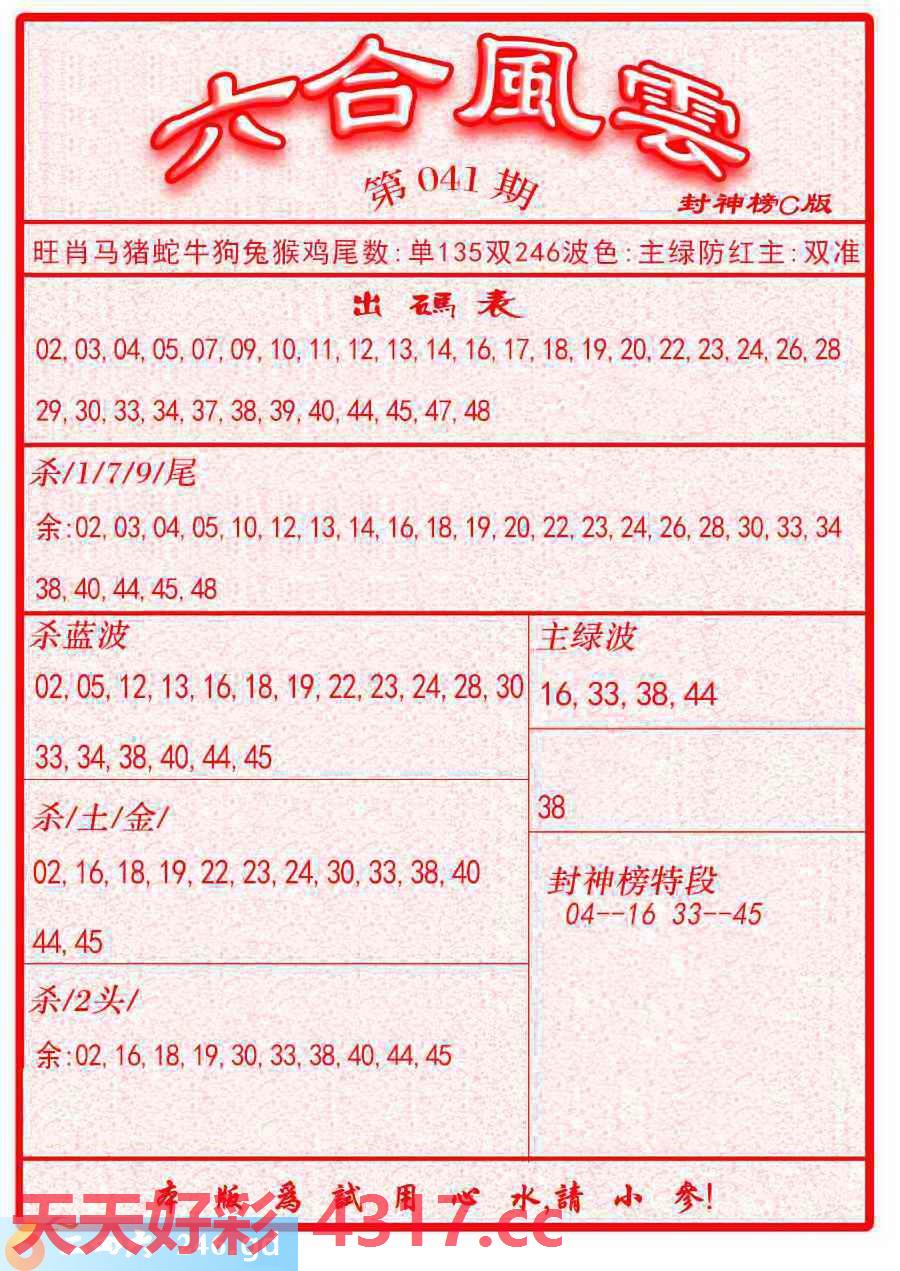 六合風雲
第041期
封神榜C版
旺肖马猪蛇牛狗兔猴鸡尾数:单135双246波色:主绿防红主:双准
出碼表
02,03,04,05,07,09,10,11,12,13,14,16,17,18,19,20,22,23,24,26,28
29,30,33,34,37,38,39,40,44,45,47,48
杀/1/7/9/尾
余:02,03,04,05,10,12,13,14,16,18,19,20,22,23,24,26,28,30,33,34
38,40,44,45,48
杀蓝波
02,05,12,13,16,18,19,22,23,24,28,30
33,34,38,40,44,45
杀/土/金/
02,16,18,19,22,23,24,30,33,38,40
44,45
杀/2头/
余:02,16,18,19,30,33,38,40,44,45
主绿波
16,33,38,44
38
封神榜特段
04--16 33--45
本版爲試用心水,請小參!
天天好彩 4317.cc
246.gd